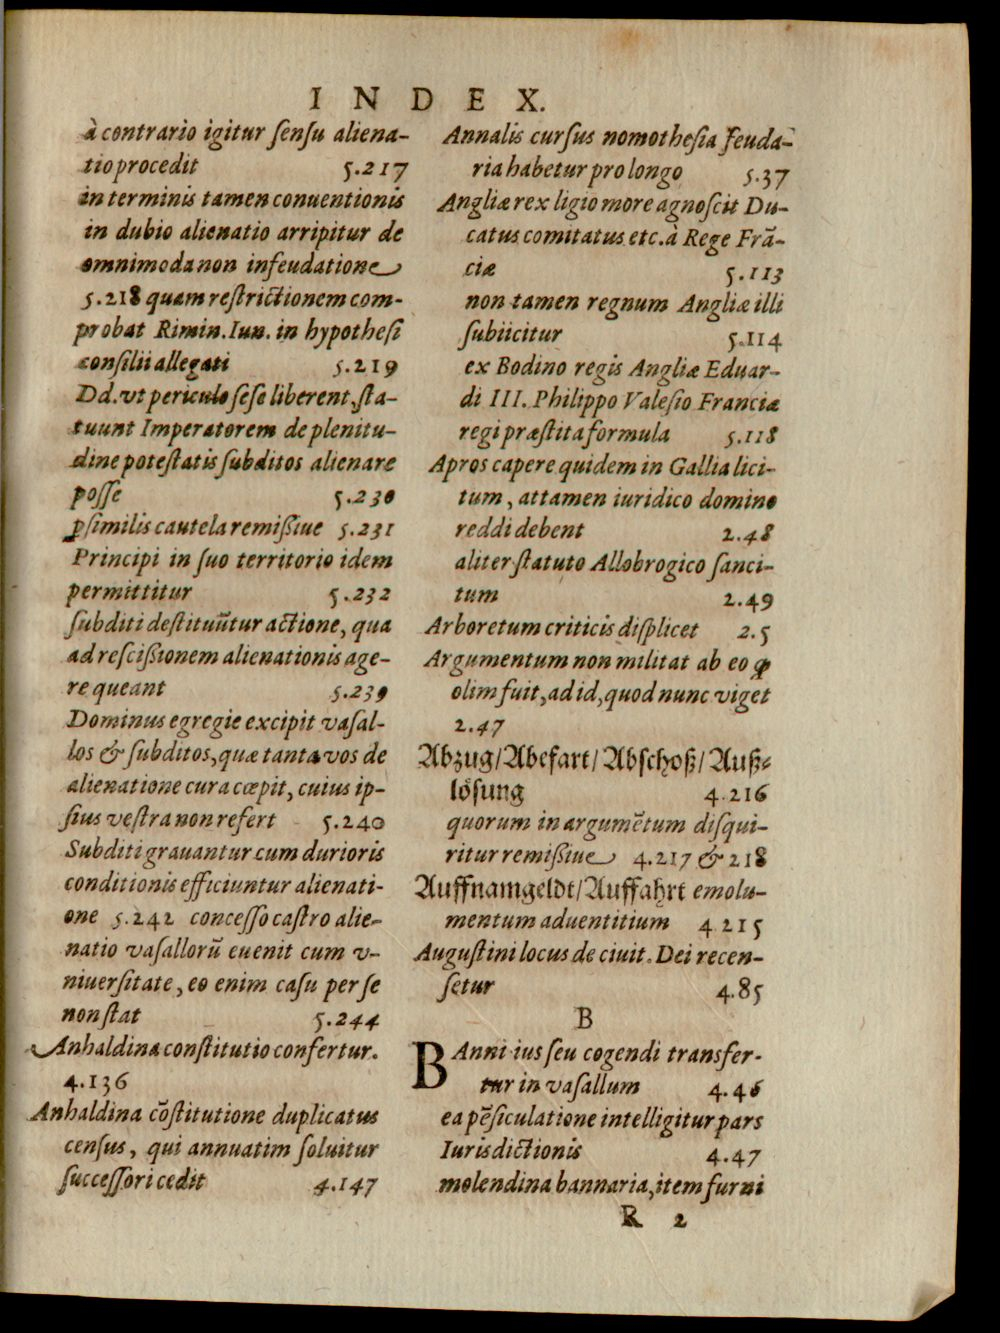 INDEX.
à contrario igitur ſenſu aliena-
tio procedit 5.217
in terminis tamen conuentionis
in dubio alienatio arripitur de
omnimoda non infeudatione
5.218 quam reſtrictionem com-
probat Rimin. Iun. in hypotheſi
conſilii allegati 5.219
Dd. vt periculo ſeſe liberent, ſta-
tuunt Imperatorem de plenitu-
dine poteſtatis ſubditos alienare
poſſe 5.230
ꝑſimilis cautela remißiue 5.231
Principi in ſuo territorio idem
permittitur 5.232
ſubditi deſtituũtur actione, qua
ad reſcißionem alienationis age-
re queant 5.239
Dominus egregie excipit vaſal-
los & ſubditos, quæ tanta vos de
alienatione cura cœpit, cuius ip-
ſius veſtra non refert 5.240
Subditi grauantur cum durioris
conditionis efficiuntur alienati-
one 5.242 conceſſo caſtro alie-
natio vaſallorũ euenit cum v-
niuerſitate, eo enim caſu per ſe
non ſtat 5.244
Anhaldina conſtitutio confertur.
4.136
Anhaldina cõſtitutione duplicatus
cenſus, qui annuatim ſoluitur
ſucceſſori cedit 4.147
Annalis curſus nomotheſia feuda-
ria habetur pro longo 5.37
Angliæ rex ligio more agnoſcit Du-
catus comitatus etc. à Rege Frã-
ciæ 5.113
non tamen regnum Angliæ illi
ſubiicitur 5.114
ex Bodino regis Angliæ Eduar-
di III. Philippo Valeſio Franciæ
regi præſtita formula 5.118
Apros capere quidem in Gallia lici-
tum, attamen iuridico domino
reddi debent 2.48
aliter ſtatuto Allobrogico ſanci-
tum 2.49
Arboretum criticis diſplicet 2.5
Argumentum non militat ab eo ꝙ
olim fuit, ad id, quod nunc viget
2.47
Abzug/Abefart/Abſchoß/Auß-
löſung 4.216
quorum in argumẽtum diſqui-
ritur remißiue 4.217 & 218
Auffnamgeldt/Auffahrt emolu-
mentum aduentitium 4.215
Auguſtini locus de ciuit. Dei recen-
ſetur 4.85
B
BAnni ius ſeu cogendi transfer-
tur in vaſallum 4.46
ea pẽſiculatione intelligitur pars
Iurisdictionis 4.47
molendina bannaria, item furni
R 2